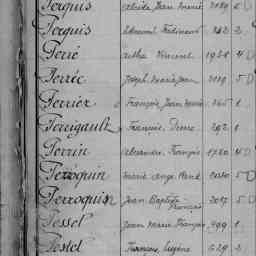 Ferquis Jean Marie 5
Ferquis Edmond Ferdinand 2
Ferré Arthur Vincent 1928 4 D
Ferrée Joseph Marie Jean 5 D
Ferrier François Jean Marie 265 1
Ferrigault François Pierre 292 1
Ferrin Alexandre François 1780 4 D
Ferroquin Marie Ange René 5 D
Ferroquin Jean Baptiste François 2017 5 D
Fessel Jean Marie François 499 1
Festel François Eugène 629 2